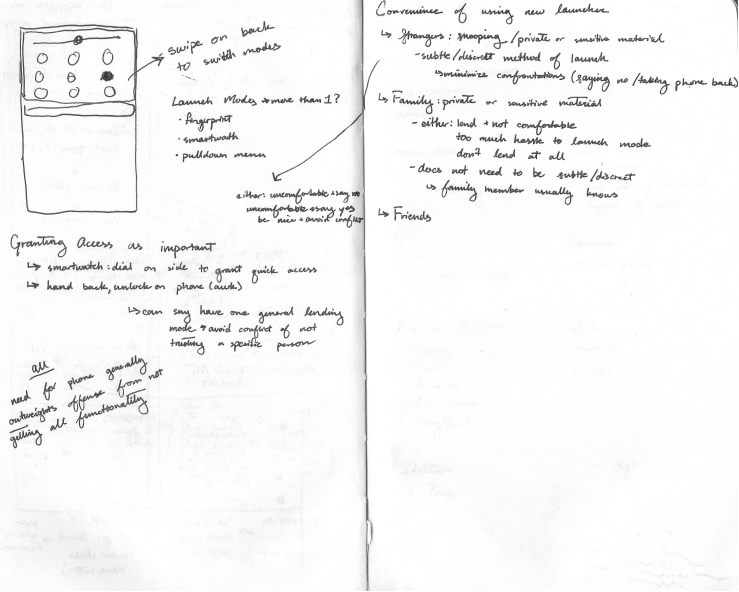 swipe on back
to switch modes
Launch Modes → more than 1?
• fingerprint
• smartwatch
• pulldown menu
either: uncomfortable → say no
uncomfortable → say yes
be nice + avoid conflict
Granting Access as important
↳ smartwatch: dial on side to grant quick access
↳ hand back, unlock on phone (awk)
↳ can say have one general lending
mode → avoid conflict of not
trusting a specific person
all
need for phone generally
outweighs offense from not
getting all functionality
Convenience of using new launcher
↳ Strangers: snooping/private or sensitive material
- subtle/discret method of launch
↳ minimize confrontations (saying no/taking phone back)
↳ Family: private or sensitive material
- either: lend + not comfortable
too much hassle to launch mode
don't lend at all
- does not need to be subtle/discret
↳ family member usually knows
↳ Friends